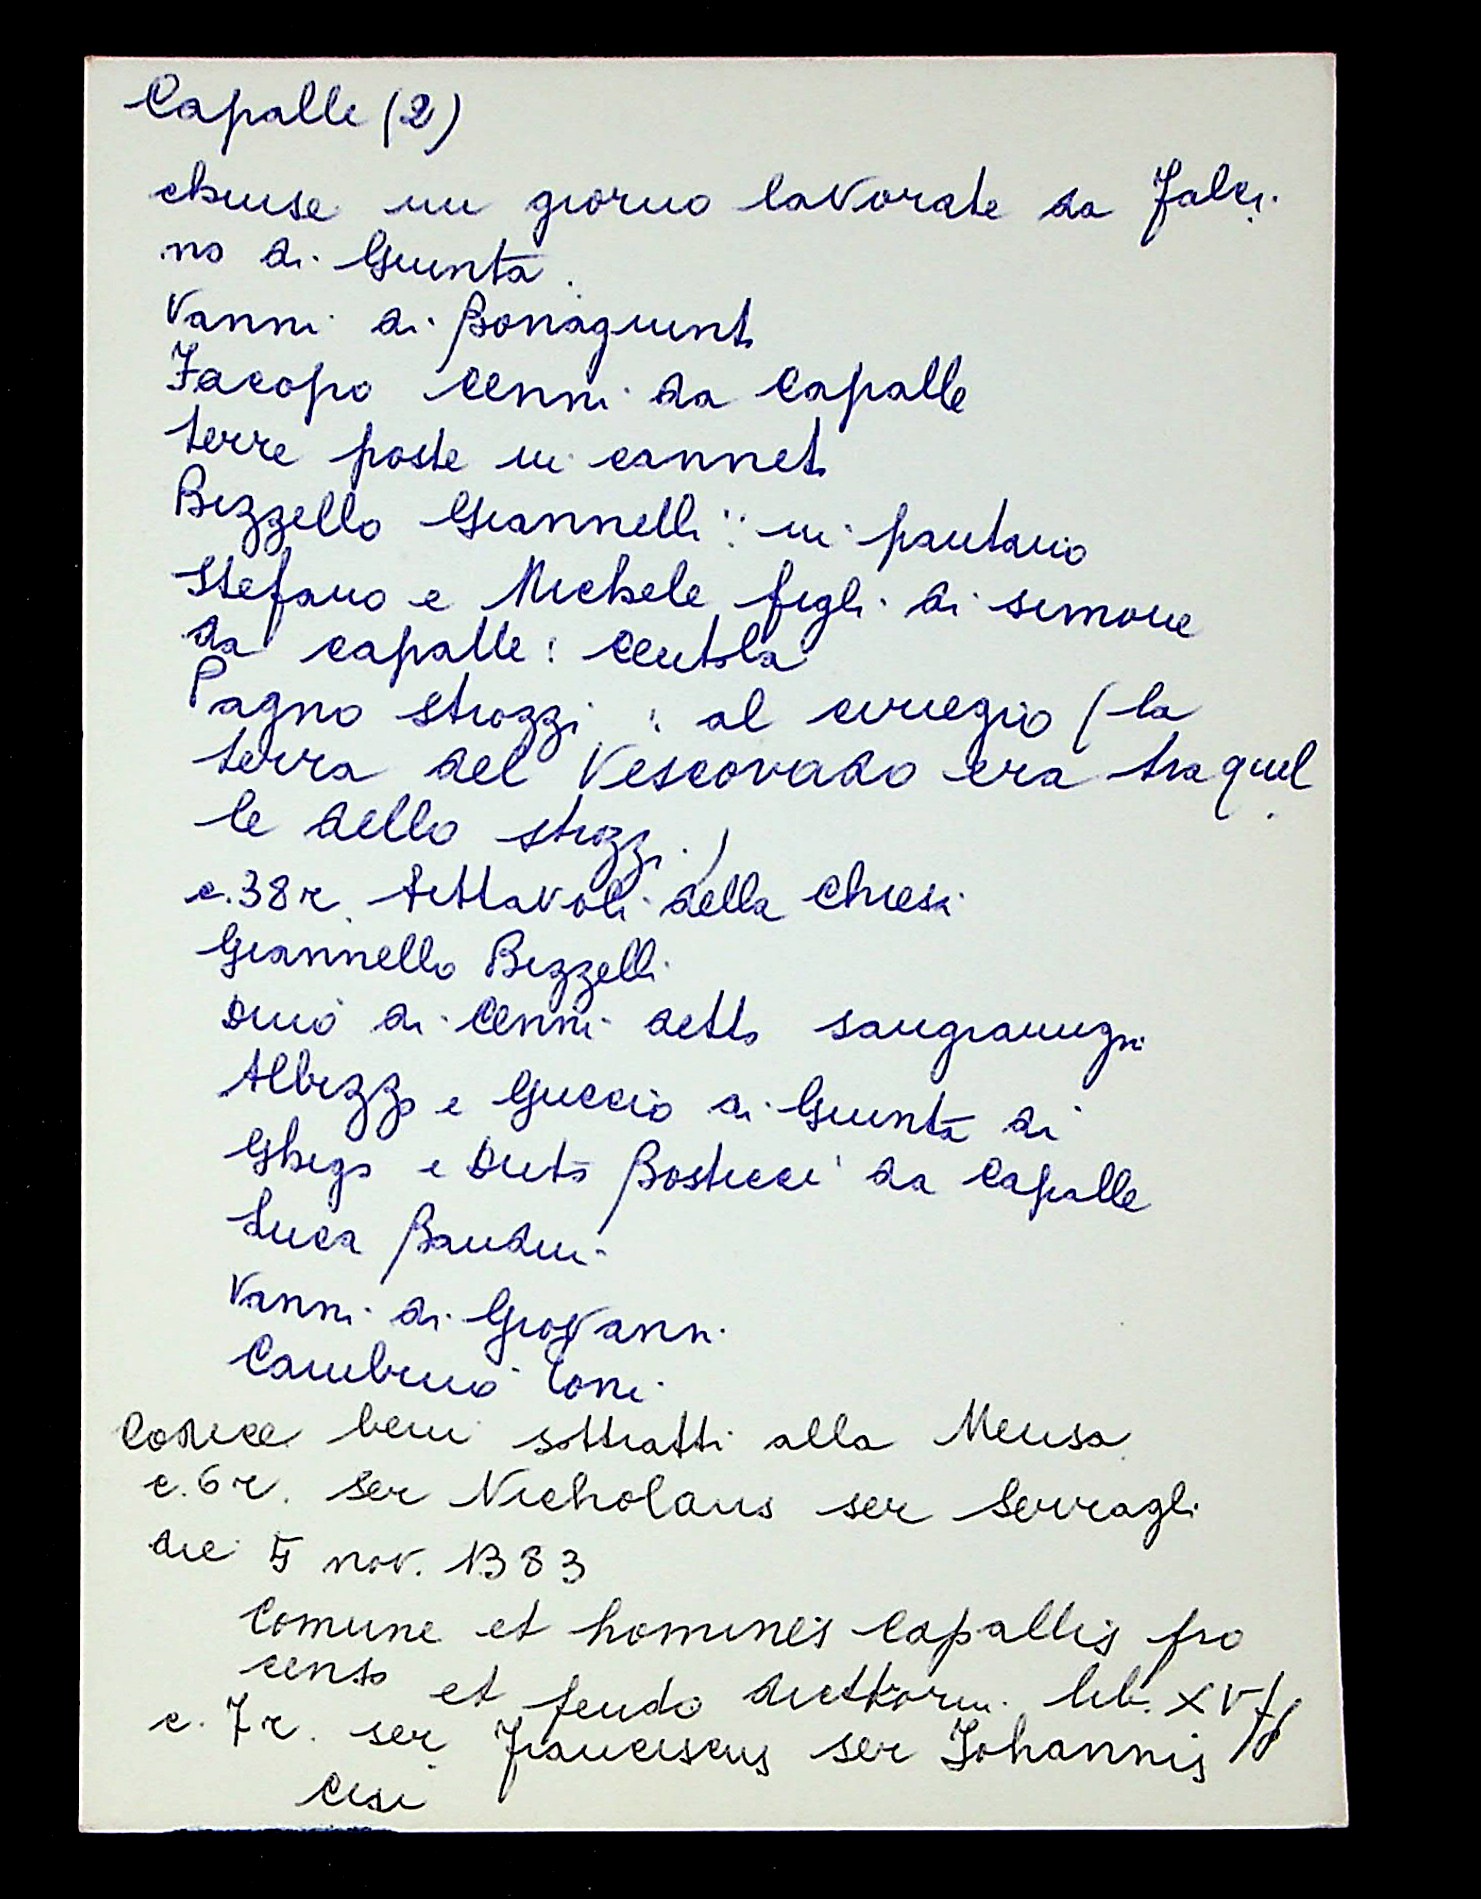 Capalle (2)
chiuse un giorno lavorate da Falci-
no di Giunta.
Vanni di Bonagiunta
Jacopo Cenni da Capalle
terre poste in canneto
Bizzello Giannelli: in pantano
Stefano e Michele figli di Simone
da Capalle: Centola
Pagno Strozzi: al (la
terra del Vescovado era tra quel
le dello Strozzi.)
c.38r. fittavoli della chiesa
Giannello Bizzelli
Dino di Cenni detto
Albizzo e Guccio di Giunta di
Ghigo e Duto Bosticci da Capalle
Luca Bandini
Vanni di Giovanni
Cambino Toni
Codice beni sottratti alla Mensa
c.6r. Ser Nicholaus ser Serragli
die 5 nov. 1383
Comune et homines Capallis pro
censo et feudo dictorum lib. XV
c.7r. ser Franciscus ser Johannis
Cisi